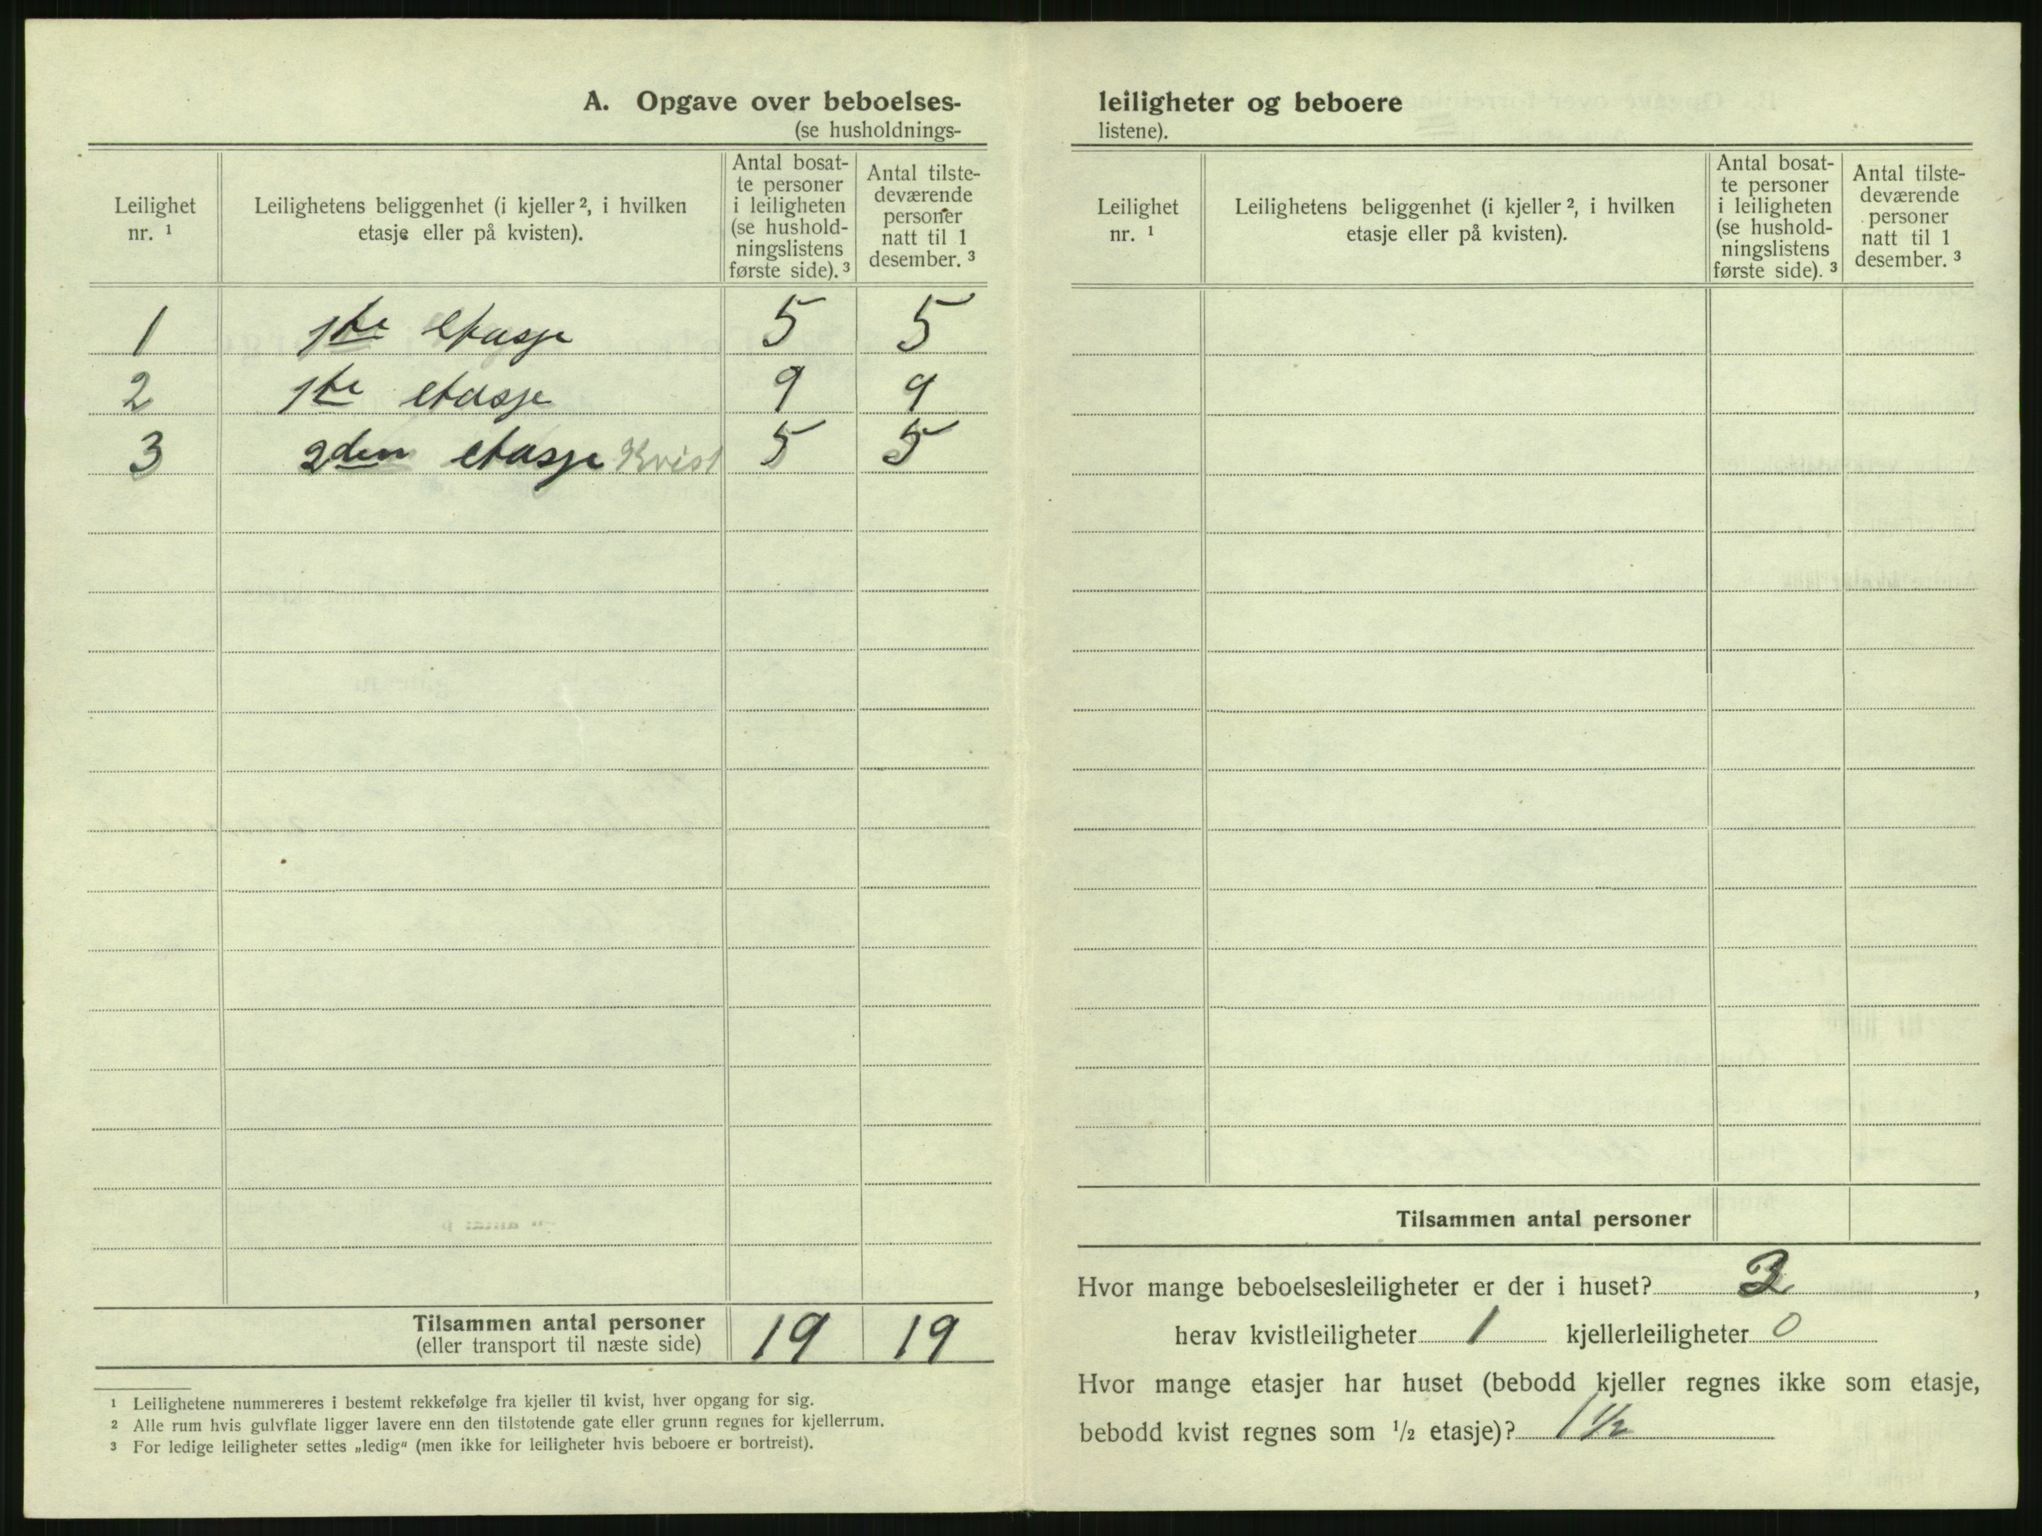 A. Opgave over beboelses-
(se husholdnings-
Leilighet nr. ¹
Leilighetens beliggenhet (i kjeller ², i hvilken etasje eller på kvisten).
Antal bosat-
te personer
i leiligheten
(se hushold-
ningslistens
første side). ³
Antal tilste-
deværende
personer
natt til 1
desember. ³
1 1ste etasje 5 5
2 1ste etasje 9 9
3 2den etasje Kvist 5 5
Tilsammen antal personer 19 19
(eller transport til næste side)
¹ Leilighetene nummereres i bestemt rekkefølge fra kjeller til kvist, hver opgang for sig.
² Alle rum hvis gulvflate ligger lavere enn den tilstøtende gate eller grunn regnes for kjellerrum.
³ For ledige leiligheter settes „ledig" (men ikke for leiligheter hvis beboere er bortreist).
leiligheter og beboere
listene).
Leilighet nr. ¹
Leilighetens beliggenhet (i kjeller ², i hvilken etasje eller på kvisten).
Antal bosat-
te personer
i leiligheten
(se hushold-
ningslistens
første side). ³
Antal tilste-
deværende
personer
natt til 1
desember. ³
Tilsammen antal personer
Hvor mange beboelsesleiligheter er der i huset? 3,
herav kvistleiligheter 1 kjellerleiligheter 0
Hvor mange etasjer har huset (bebodd kjeller regnes ikke som etasje,
bebodd kvist regnes som ½ etasje)? 1 ½